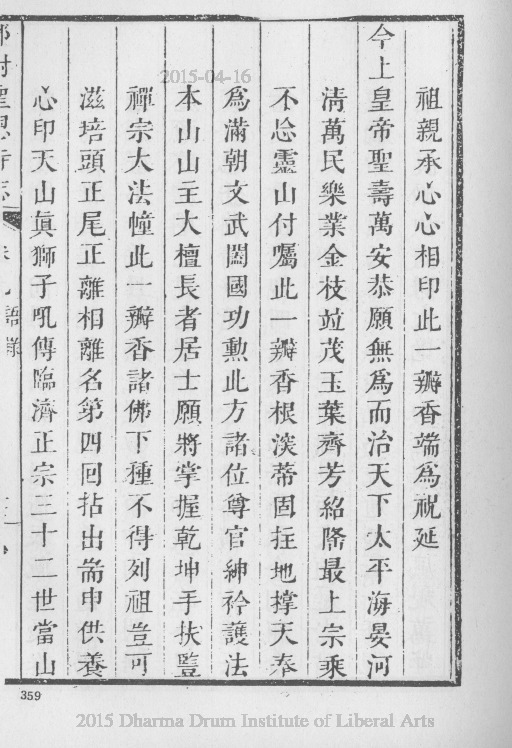 祖親承心心相印此一瓣香端為祝延
今上皇帝聖壽萬安恭願無為而治天下太平海晏河
清萬民樂業金枝竝茂玉葉齊芳紹隆最上宗乘
不忘靈山付囑此一瓣香根深蒂固拄地撐天奉
為滿朝文武闔國功勲此方諸位尊官紳衿護法
本山山主大檀長者居士願將掌握乾坤手扶豎
禪宗大法幢此一瓣香諸佛下種不得列祖豈可
滋培頭正尾正離相離名第四回拈出耑申供養
心印天山眞獅子吼傳臨濟正宗三十二世當山
聖恩寺志 語錄
359
2015-04-16
2015 Dharma Drum Institute of Liberal Arts